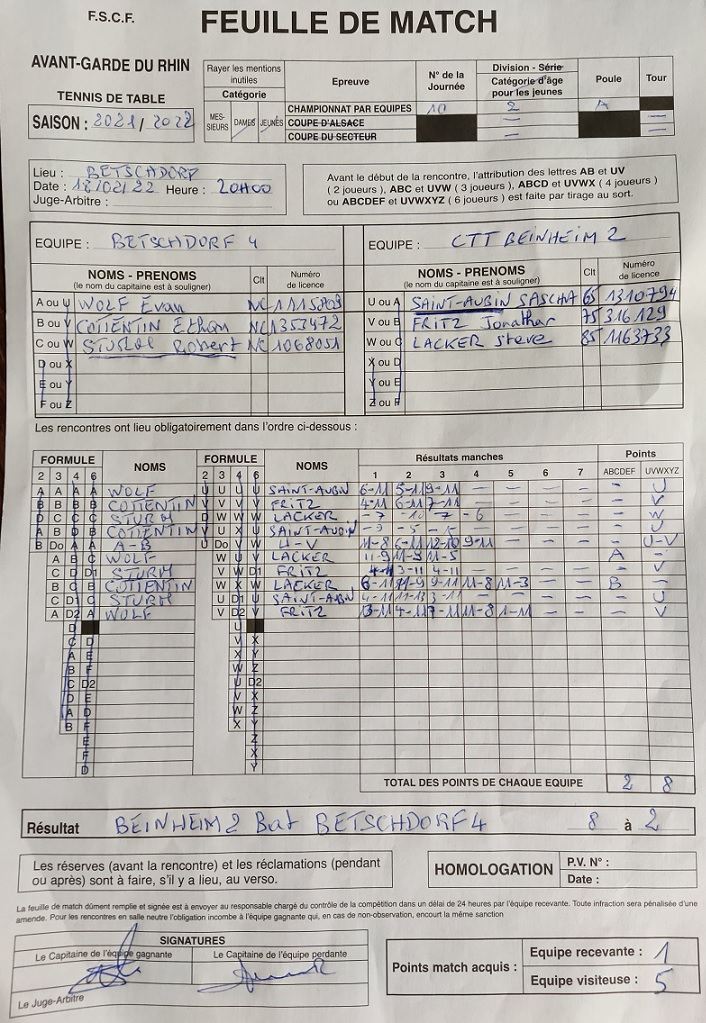 F.S.C.F.
FEUILLE DE MATCH
AVANT-GARDE DU RHIN
TENNIS DE TABLE
SAISON : 2021/2022
Rayer les mentions inutiles
Catégorie
MES-SIEURS DAMES JEUNES
Epreuve
N° de la Journée
Division - Série
Catégorie d'âge pour les jeunes
Poule
Tour
CHAMPIONNAT PAR EQUIPES 10 2 A
COUPE D'ALSACE — —
COUPE DU SECTEUR — —
Lieu : BETSCHDORF
Date : 18/02/22 Heure : 20H00
Juge-Arbitre :
Avant le début de la rencontre, l'attribution des lettres AB et UV
( 2 joueurs ), ABC et UVW ( 3 joueurs ), ABCD et UVWX ( 4 joueurs )
ou ABCDEF et UVWXYZ ( 6 joueurs ) est faite par tirage au sort.
EQUIPE : BETSCHDORF 4
EQUIPE : CTT BEINHEIM 2
NOMS - PRENOMS
(le nom du capitaine est à souligner)
Clt
Numéro de licence
NOMS - PRENOMS
(le nom du capitaine est à souligner)
Clt
Numéro de licence
A ou U WOLF Evan NC
U ou A SAINT-AUBIN SASCHA 65 1310794
B ou V COTIENTIN Ethan NC 1353472
V ou B FRITZ Jonathan 75 316129
C ou W STURM Robert NC 1068051
W ou C LACKER Steve 85 1163733
D ou X
X ou D
E ou Y
Y ou E
F ou Z
Z ou F
Les rencontres ont lieu obligatoirement dans l'ordre ci-dessous :
FORMULE NOMS FORMULE NOMS Résultats manches Points
2 3 4 6 2 3 4 6 1 2 3 4 5 6 7 ABCDEF UVWXYZ
A A A A WOLF U U U U SAINT-AUBIN 6-11 5-11 9-11 — — — — — U
B B B B COTIENTIN V V V V FRITZ 4-11 6-11 7-11 — — — — — V
D C C C STURM D W W W LACKER -7 -10 -7 -6 — — — — W
A B D B COTIENTIN U U X U SAINT-AUBIN — — — — — U
B Do A A A-B U Do V W U-V 11-8 6-11 12-10 9-11 — — — — U-V
A B C WOLF W U V LACKER 11-9 11-9 11-5 — — — — A —
C D D1 STURM V W D1 FRITZ 3-11 4-11 — — — — — V
B C B COTIENTIN W X W LACKER 6-11 9-11 11-8 11-3 — — B —
C D1 C STURM U D1 U SAINT-AUBIN 4-11 11-13 3-11 — — — — — U
A D2 A WOLF V D2 V FRITZ 13-11 4-11 7-11 11-8 — — — V
D U
C D V X
A E X Y
B F W Z
C D2 U D2
D E V X
A D W Z
B F X Y
E Z
F X
D Y
TOTAL DES POINTS DE CHAQUE EQUIPE 2 8
Résultat BEINHEIM 2 Bat BETSCHDORF 4 8 à 2
Les réserves (avant la rencontre) et les réclamations (pendant
ou après) sont à faire, s'il y a lieu, au verso.
HOMOLOGATION
P.V. N° :
Date :
La feuille de match dûment remplie et signée est à envoyer au responsable chargé du contrôle de la compétition dans un délai de 24 heures par l'équipe recevante. Toute infraction sera pénalisée d'une
amende. Pour les rencontres en salle neutre l'obligation incombe à l'équipe gagnante qui, en cas de non-observation, encourt la même sanction
SIGNATURES
Le Capitaine de l'équipe gagnante
Le Capitaine de l'équipe perdante
Le Juge-Arbitre
Points match acquis :
Equipe recevante : 1
Equipe visiteuse : 5